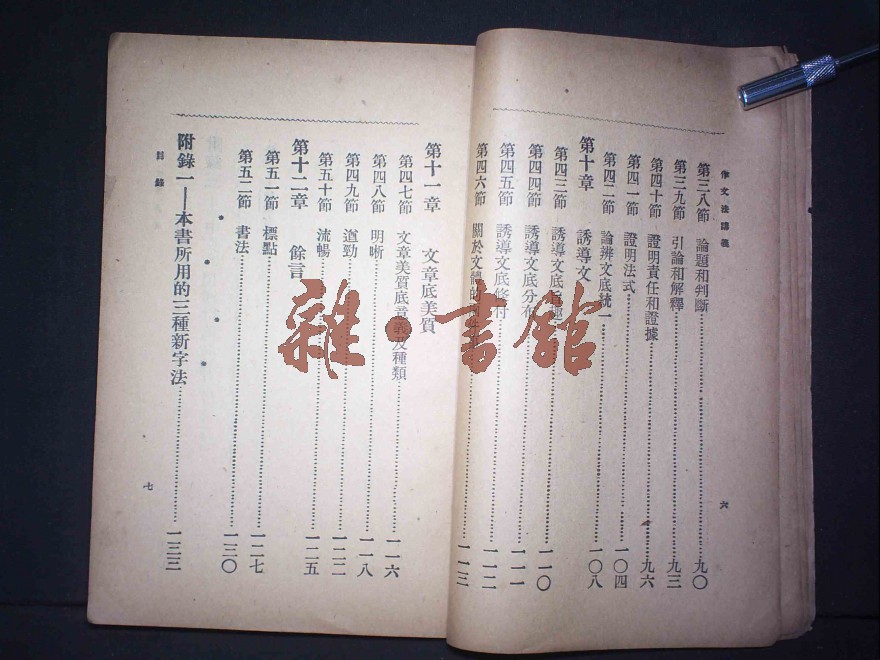 作文法講義
第三八節 論題和判斷 九〇
第三九節 引論和解釋 九三
第四十節 證明責任和證據 九六
第四一節 證明法式 一〇四
第四二節 論辨文底統一 一〇八
第十章 誘導文
第四三節 誘導文底 一一〇
第四四節 誘導文底分布 一一一
第四五節 誘導文底 付 一一二
第四六節 關於文體的 一一三
六
第十一章 文章底美質
第四七節 文章美質底 及種類 一一六
第四八節 明晰 一一八
第四九節 遒勁 一二二
第五十節 流暢 一二五
第十二章 餘言
第五一節 標點 一二七
第五二節 書法 一三〇
附錄一——本書所用的三種新字法 一三三
目錄
七
雜·書館